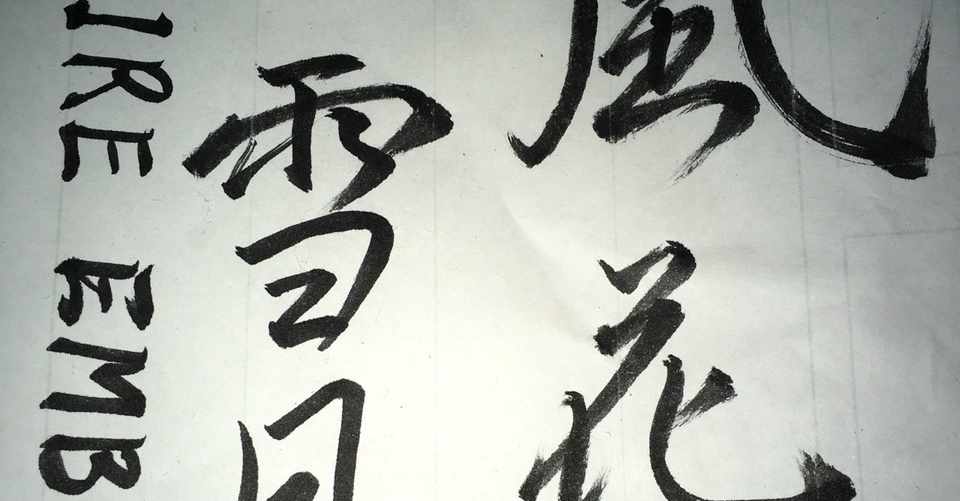 風花
雪月
IRE EMB